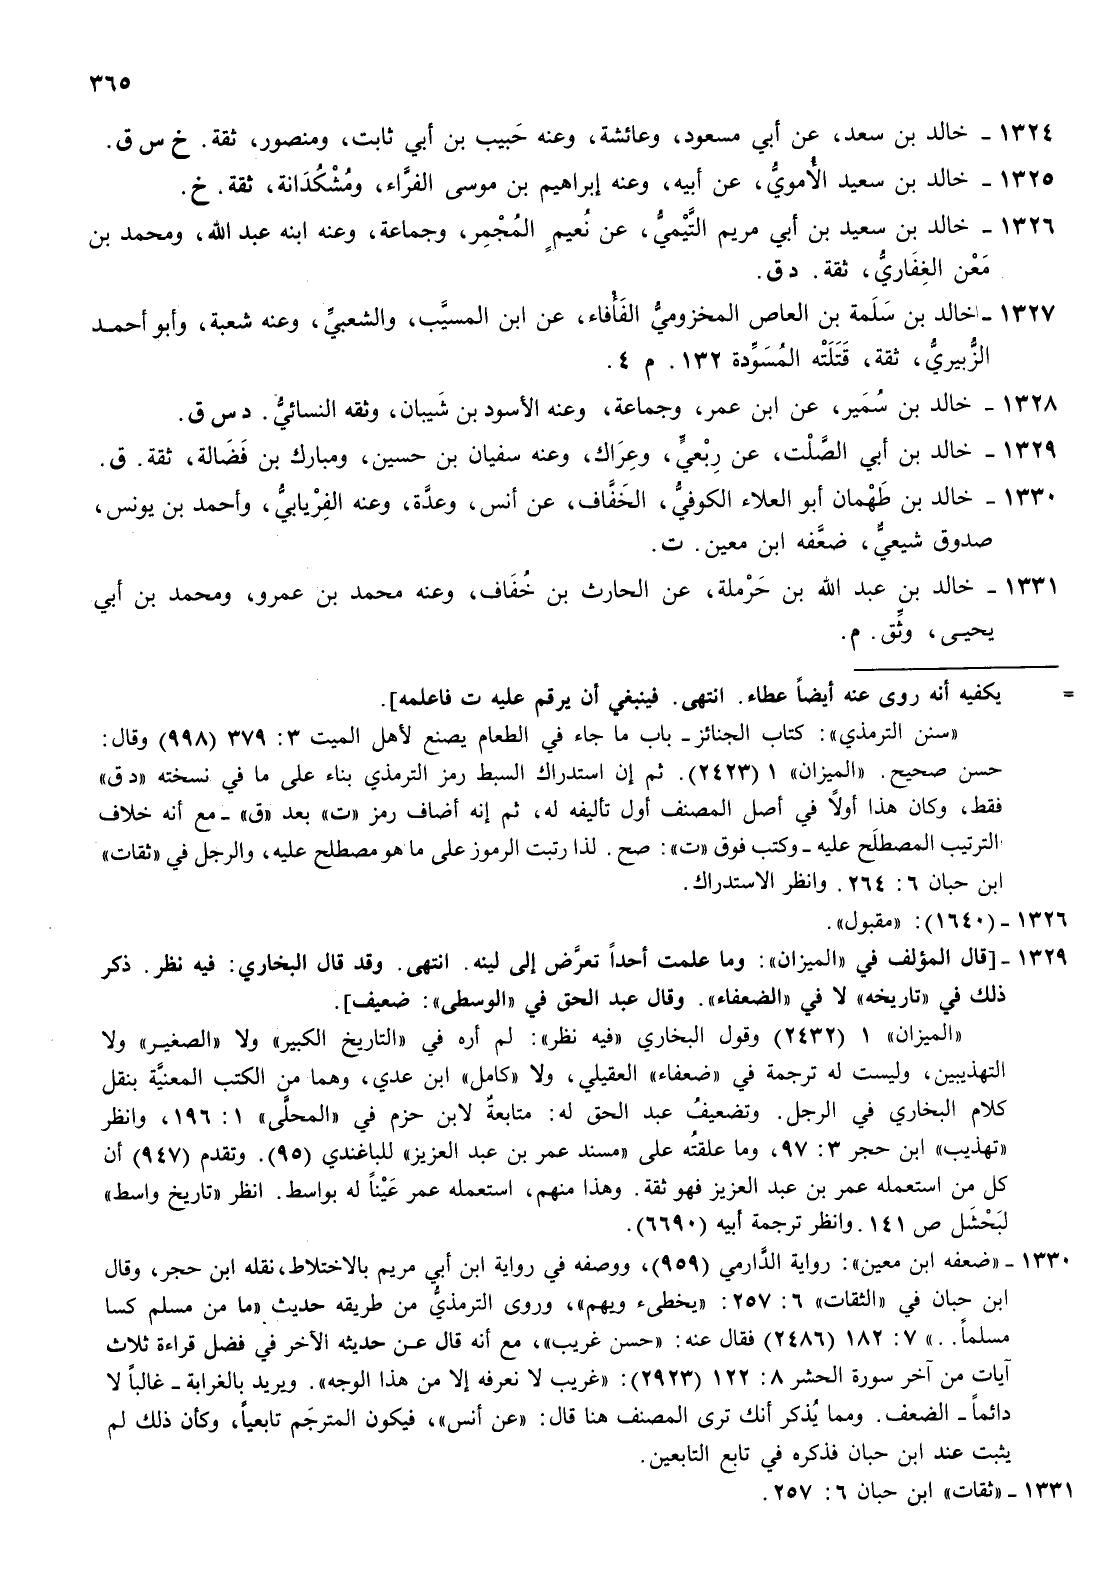 ٣٦٥
١٣٢٤ ـ خالد بن سعد، عن أبي مسعود، وعائشة، وعنه حَبيب بن أبي ثابت، ومنصور، ثقة. خ س ق.
١٣٢٥ ـ خالد بن سعيد الأُمويُّ، عن أبيه، وعنه إبراهيم بن موسى الفرَّاء، ومُشْكُدَانة، ثقة. خ.
١٣٢٦ ـ خالد بن سعيد بن أبي مريم التَّيْميُّ، عن نُعيمٍ المُجْمِر، وجماعة، وعنه ابنه عبد الله، ومحمد بن
مَعْن الغِفَاريُّ، ثقة. د ق.
١٣٢٧ ـ خالد بن سَلَمة بن العاص المخزوميُّ الفَأْفاء، عن ابن المسيَّب، والشعبيِّ، وعنه شعبة، وأبو أحمد
الزُّبيريُّ، ثقة، قَتَلَتْه المُسَوِّدة ١٣٢. م ٤.
١٣٢٨ ـ خالد بن سُمَير، عن ابن عمر، وجماعة، وعنه الأسود بن شَيبان، وثقه النسائيُّ. د س ق.
١٣٢٩ ـ خالد بن أبي الصَّلْت، عن رِبْعيٍّ، وعِرَاك، وعنه سفيان بن حسين، ومبارك بن فَضَالة، ثقة. ق.
١٣٣٠ ـ خالد بن طَهْمان أبو العلاء الكوفيُّ، الخَفَّاف، عن أنس، وعدَّة، وعنه الفِرْيابيُّ، وأحمد بن يونس،
صدوق شيعيٌّ، ضعَّفه ابن معين. ت.
١٣٣١ ـ خالد بن عبد الله بن حَرْملة، عن الحارث بن خُفَاف، وعنه محمد بن عمرو، ومحمد بن أبي
يحيى، وثِّق. م.
= يكفيه أنه روى عنه أيضاً عطاء. انتهى. فينبغي أن يرقم عليه ت فاعلمه].
«سنن الترمذي»: كتاب الجنائز ـ باب ما جاء في الطعام يصنع لأهل الميت ٣: ٣٧٩ (٩٩٨) وقال:
حسن صحيح. «الميزان» ١ (٢٤٢٣). ثم إن استدراك السبط رمز الترمذي بناء على ما في نسخته «د ق»
فقط، وكان هذا أولاً في أصل المصنف أول تأليفه له، ثم إنه أضاف رمز «ت» بعد «ق» ـ مع أنه خلاف
الترتيب المصطلَح عليه ـ وكتب فوق «ت»: صح. لذا رتبت الرموز على ما هو مصطلح عليه، والرجل في «ثقات»
ابن حبان ٦: ٢٦٤. وانظر الاستدراك.
١٣٢٦ ـ (١٦٤٠): «مقبول».
١٣٢٩ ـ [قال المؤلف في «الميزان»: وما علمت أحداً تعرَّض إلى لينه. انتهى. وقد قال البخاري: فيه نظر. ذكر
ذلك في «تاريخه» لا في «الضعفاء». وقال عبد الحق في «الوسطى»: ضعيف].
«الميزان» ١ (٢٤٣٢) وقول البخاري «فيه نظر»: لم أره في «التاريخ الكبير» ولا «الصغير» ولا
التهذيبين، وليست له ترجمة في «ضعفاء» العقيلي، ولا «كامل» ابن عدي، وهما من الكتب المعنيَّة بنقل
كلام البخاري في الرجل. وتضعيفُ عبد الحق له: متابعةٌ لابن حزم في «المحلَّى» ١: ١٩٦، وانظر
«تهذيب» ابن حجر ٣: ٩٧، وما علقتُه على «مسند عمر بن عبد العزيز» للباغندي (٩٥). وتقدم (٩٤٧) أن
كل من استعمله عمر بن عبد العزيز فهو ثقة. وهذا منهم، استعمله عمر عَيْناً له بواسط. انظر «تاريخ واسط»
لبَحْشَل ص ١٤١. وانظر ترجمة أبيه (٦٦٩٠).
١٣٣٠ ـ «ضعفه ابن معين»: رواية الدَّارمي (٩٥٩)، ووصفه في رواية ابن أبي مريم بالاختلاط، نقله ابن حجر، وقال
ابن حبان في «الثقات» ٦: ٢٥٧: «يخطىء ويهم»، وروى الترمذيُّ من طريقه حديث «ما من مسلم كسا
مسلماً..» ٧: ١٨٢ (٢٤٨٦) فقال عنه: «حسن غريب»، مع أنه قال عن حديثه الآخر في فضل قراءة ثلاث
آيات من آخر سورة الحشر ٨: ١٢٢ (٢٩٢٣): «غريب لا نعرفه إلا من هذا الوجه». ويريد بالغرابة ـ غالباً لا
دائماً ـ الضعف. ومما يُذكر أنك ترى المصنف هنا قال: «عن أنس»، فيكون المترجَم تابعياً، وكأن ذلك لم
يثبت عند ابن حبان فذكره في تابع التابعين.
١٣٣١ ـ «ثقات» ابن حبان ٦: ٢٥٧.